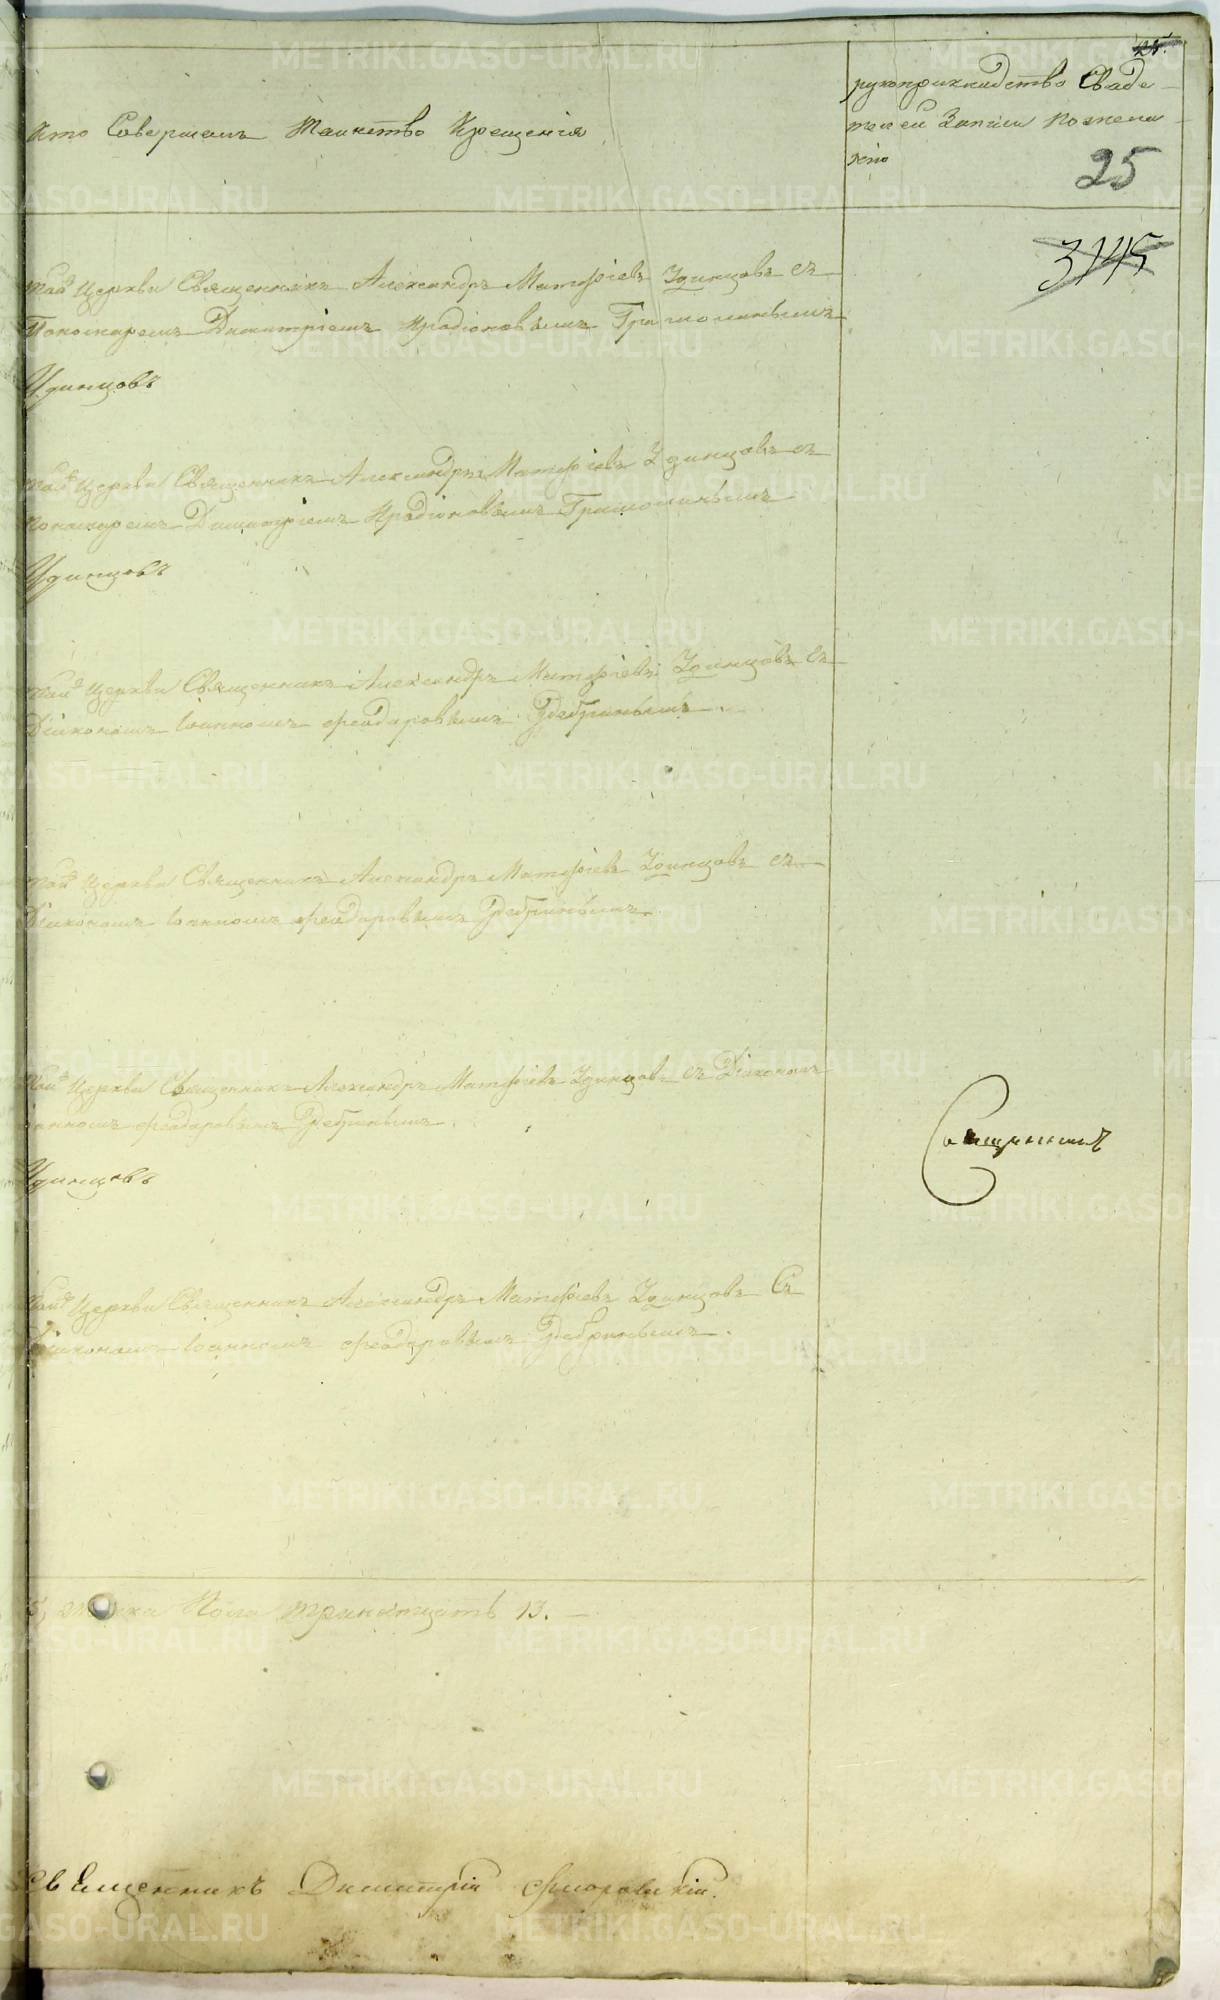 Кто Совершалъ Таинство Крещенія
рукоприкладство Свиде-
телей Записи по жела-
нію
25
3145
той Церкви Священникъ Александръ Матфіевъ Удинцовъ съ
Пономаремъ Димитріемъ Иродіоновымъ
Удинцовъ
той Церкви Священникъ Александръ Матфіевъ Удинцовъ съ
пономаремъ Димитріемъ Иродіоновымъ
Удинцовъ
той Церкви Священникъ Александръ Матфіевъ Удинцовъ съ
Діакономъ Іоанномъ Феодоровымъ
той Церкви Священникъ Александръ Матфіевъ Удинцовъ съ
Діакономъ Іоанномъ Феодоровымъ
той Церкви Священникъ Александръ Матфіевъ Удинцовъ съ Діакономъ
Іоанномъ Феодоровымъ
Удинцовъ
Священникъ
той Церкви Священникъ Александръ Матфіевъ Удинцовъ Съ
Діакономъ Іоанномъ Феодоровымъ
Пола тринатцать 13.
Священникъ Димитрій Флоровскій.